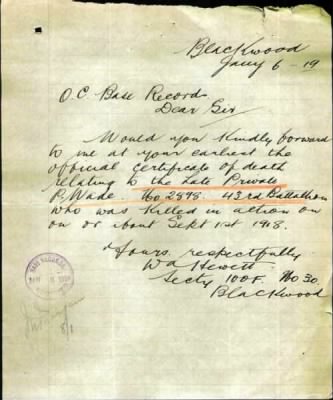 Blackwood
Jany 6 - 19
O.C. Base Records
Dear Sir
Would you kindly forward
to me at your earliest the
official certificate of death
relating to the late Private
P. Wade. No 2898. 43rd Battalion
who was killed in action on
on or about Sept 1st 1918.
Yours respectfully
Wm Hewett
Secty IOOF. No 30
Blackwood
8/1